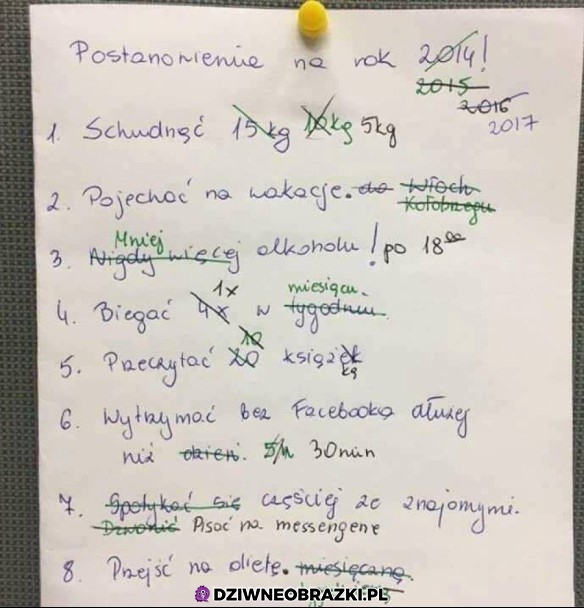 Postanowienia na rok 2014!
2015
2016
2017
1. Schudnąć 15kg 10kg 5kg
2. Pojechać na wakacje. do Włoch
Kołobrzegu
Mniej
3. Nigdy więcej alkoholu! po 18⁰⁰
1x miesiącu.
4. Biegać 4x w tygodniu.
10
5. Przeczytać 20 książek
kę
6. Wytrzymać bez Facebooka dłużej
niż dzień. 5h 30min
7. Spotykać się częściej ze znajomymi.
Dzwonić Pisać na messengerze
8. Przejść na dietę. miesięczną.
DZIWNEOBRAZKI.PL